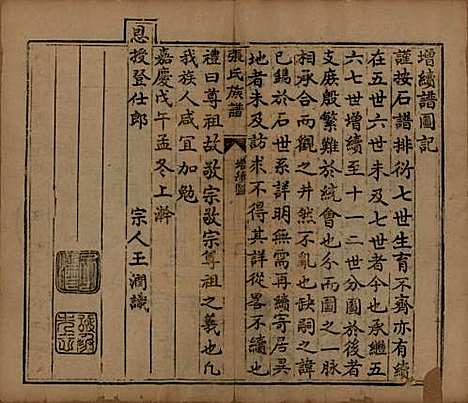 增續譜圖記
謹按石譜排衍七世生育不齊亦有續
在五世六世未及七世者今也承繼五
六七世增續至十一二世分圖於後者
支庶殷繁難於統會也分圖之一脉
相承合而觀之井然不亂也缺嗣之諱
已錫於石世系詳明無需再續寄居異
地者未及訪求不得其詳從畧不續也
張氏族譜 增續圖
禮曰尊祖故敬宗敬宗尊祖之義也凡
我族人咸宜加勉
嘉慶戊午孟冬上澣
恩授登仕郎 宗人王潤識